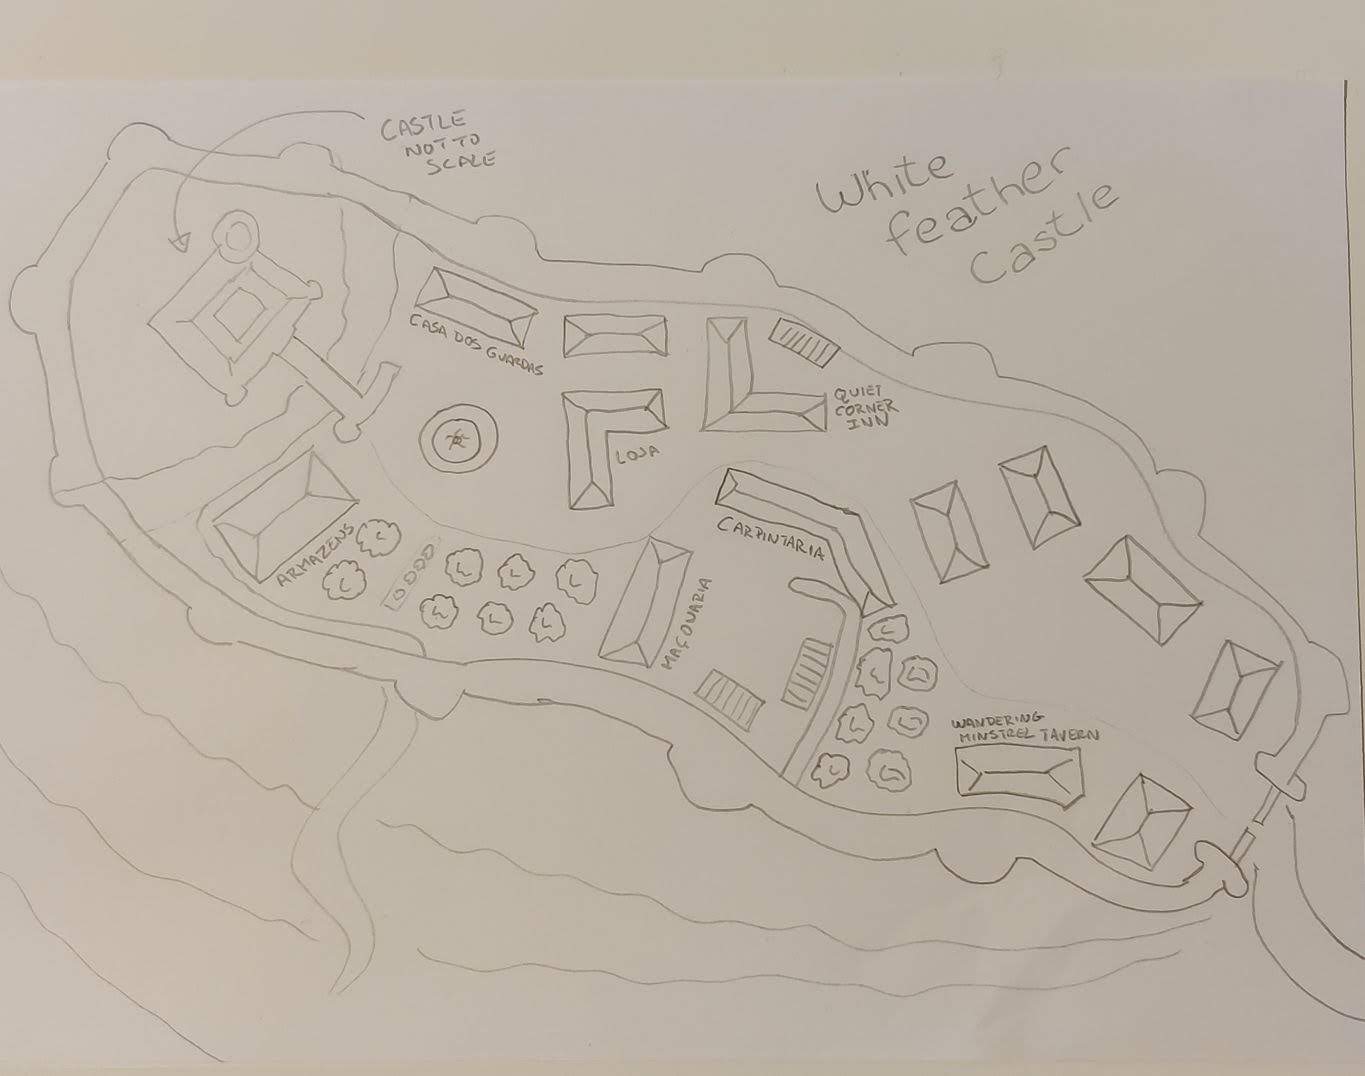 CASTLE
NOT TO
SCALE
White
feather
Castle
CASA DOS GUARDAS
QUIET
CORNER
INN
LOJA
CARPINTARIA
ARMAZENS
MAÇONARIA
WANDERING
MINSTREL TAVERN